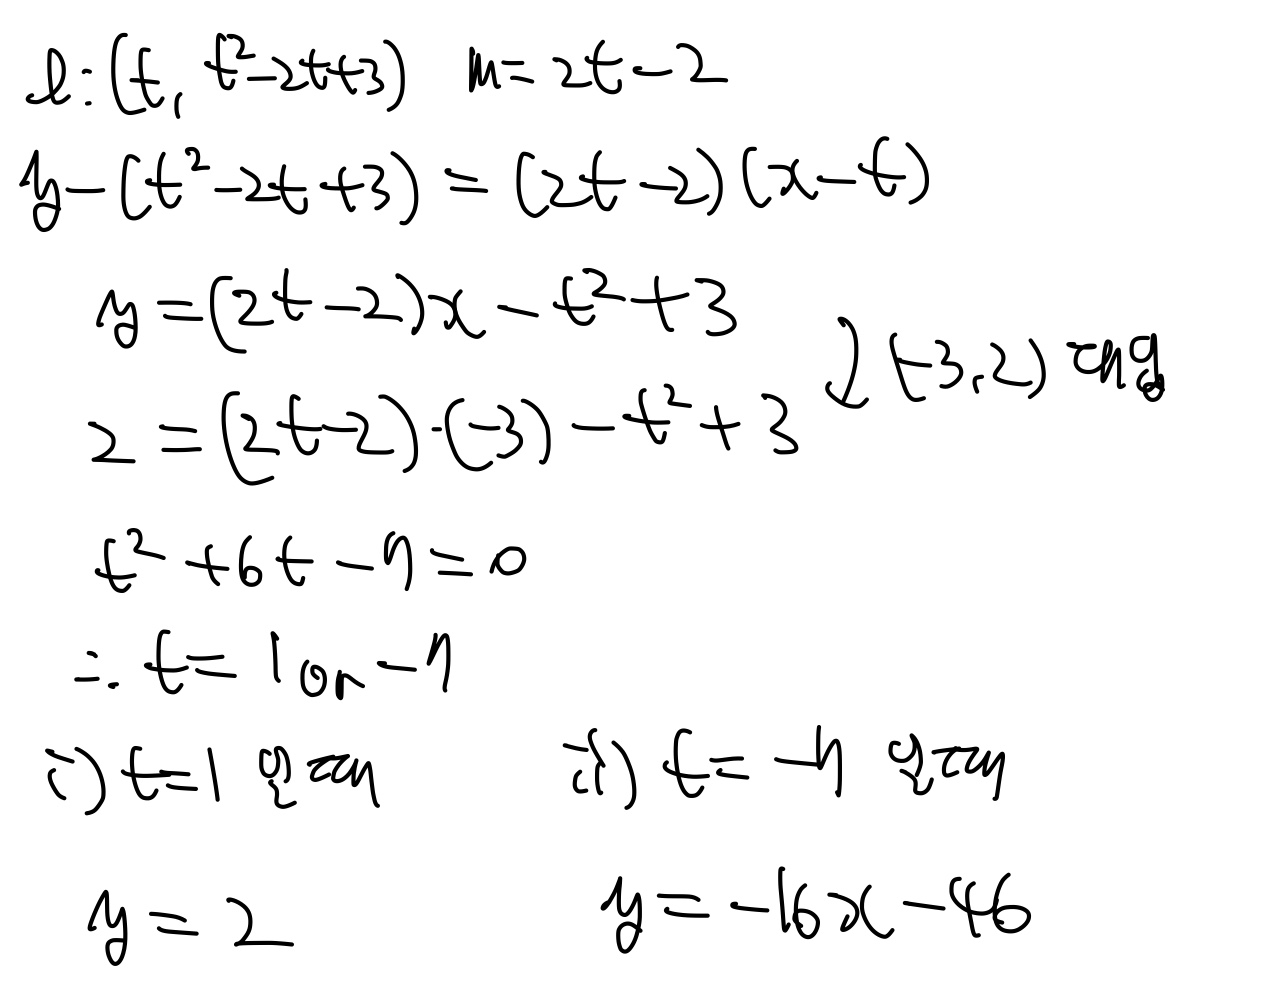 l: (t, t²-2t+3) m=2t-2
y-(t²-2t+3) = (2t-2)(x-t)
y=(2t-2)x-t²+3
(-3,2) 대입
2=(2t-2)·(-3)-t²+3
t²+6t-7=0
∴ t=1 or -7
i) t=1 일때 ii) t=-7 일때
y=2 y=-16x-46